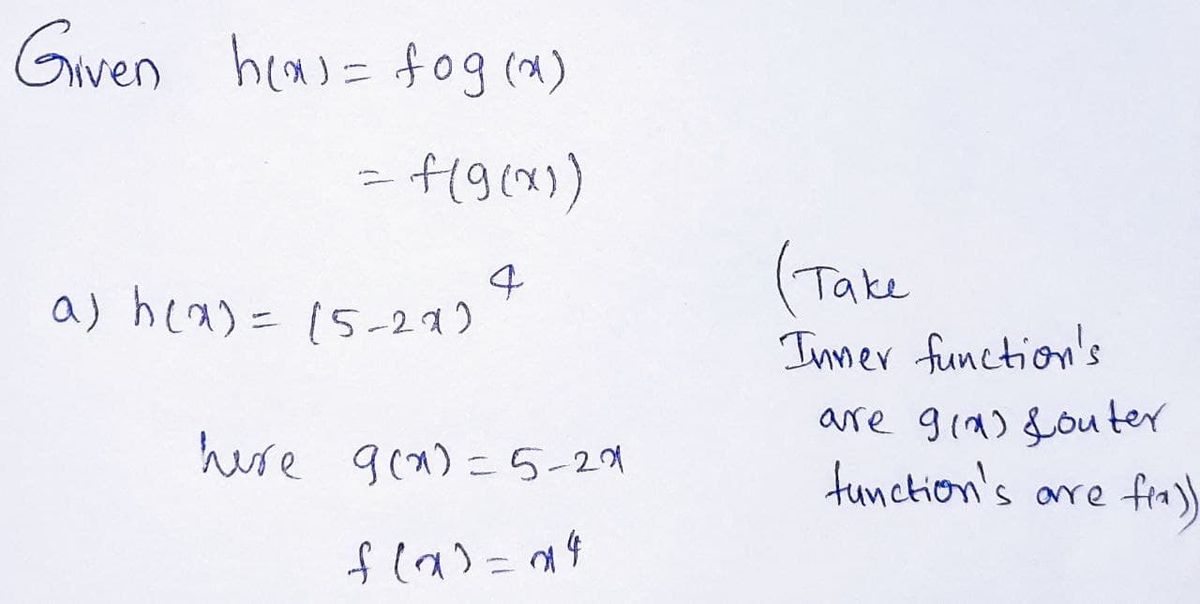 Given h(x) = fog (x)
= f(g(x))
a) h(x) = (5-2x)⁴
(Take
Inner function's
are g(x) & outer
function's are f(x))
here g(x) = 5-2x
f(x) = x⁴